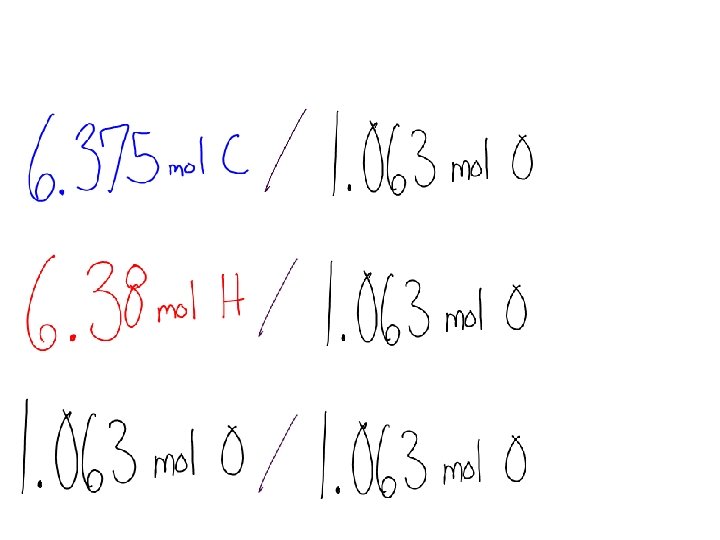 6.375 mol C / 1.063 mol O
6.38 mol H / 1.063 mol O
1.063 mol O / 1.063 mol O